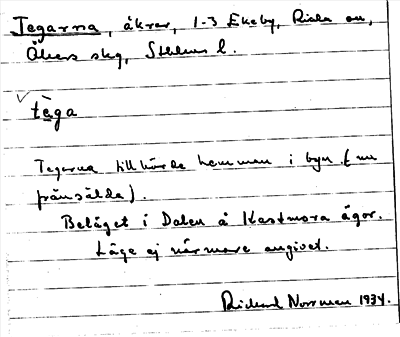 Tegarna, åkrar, 1-3 Ekeby, Riala sn,
Åkers skg, Sthlms l.
tèga
Tegarna tillhörde hemman i byn (nu
frånsålda).
Beläget i Dalen å Kastmora ägor.
Läge ej närmare angivet.
Rickard Norrman 1934.